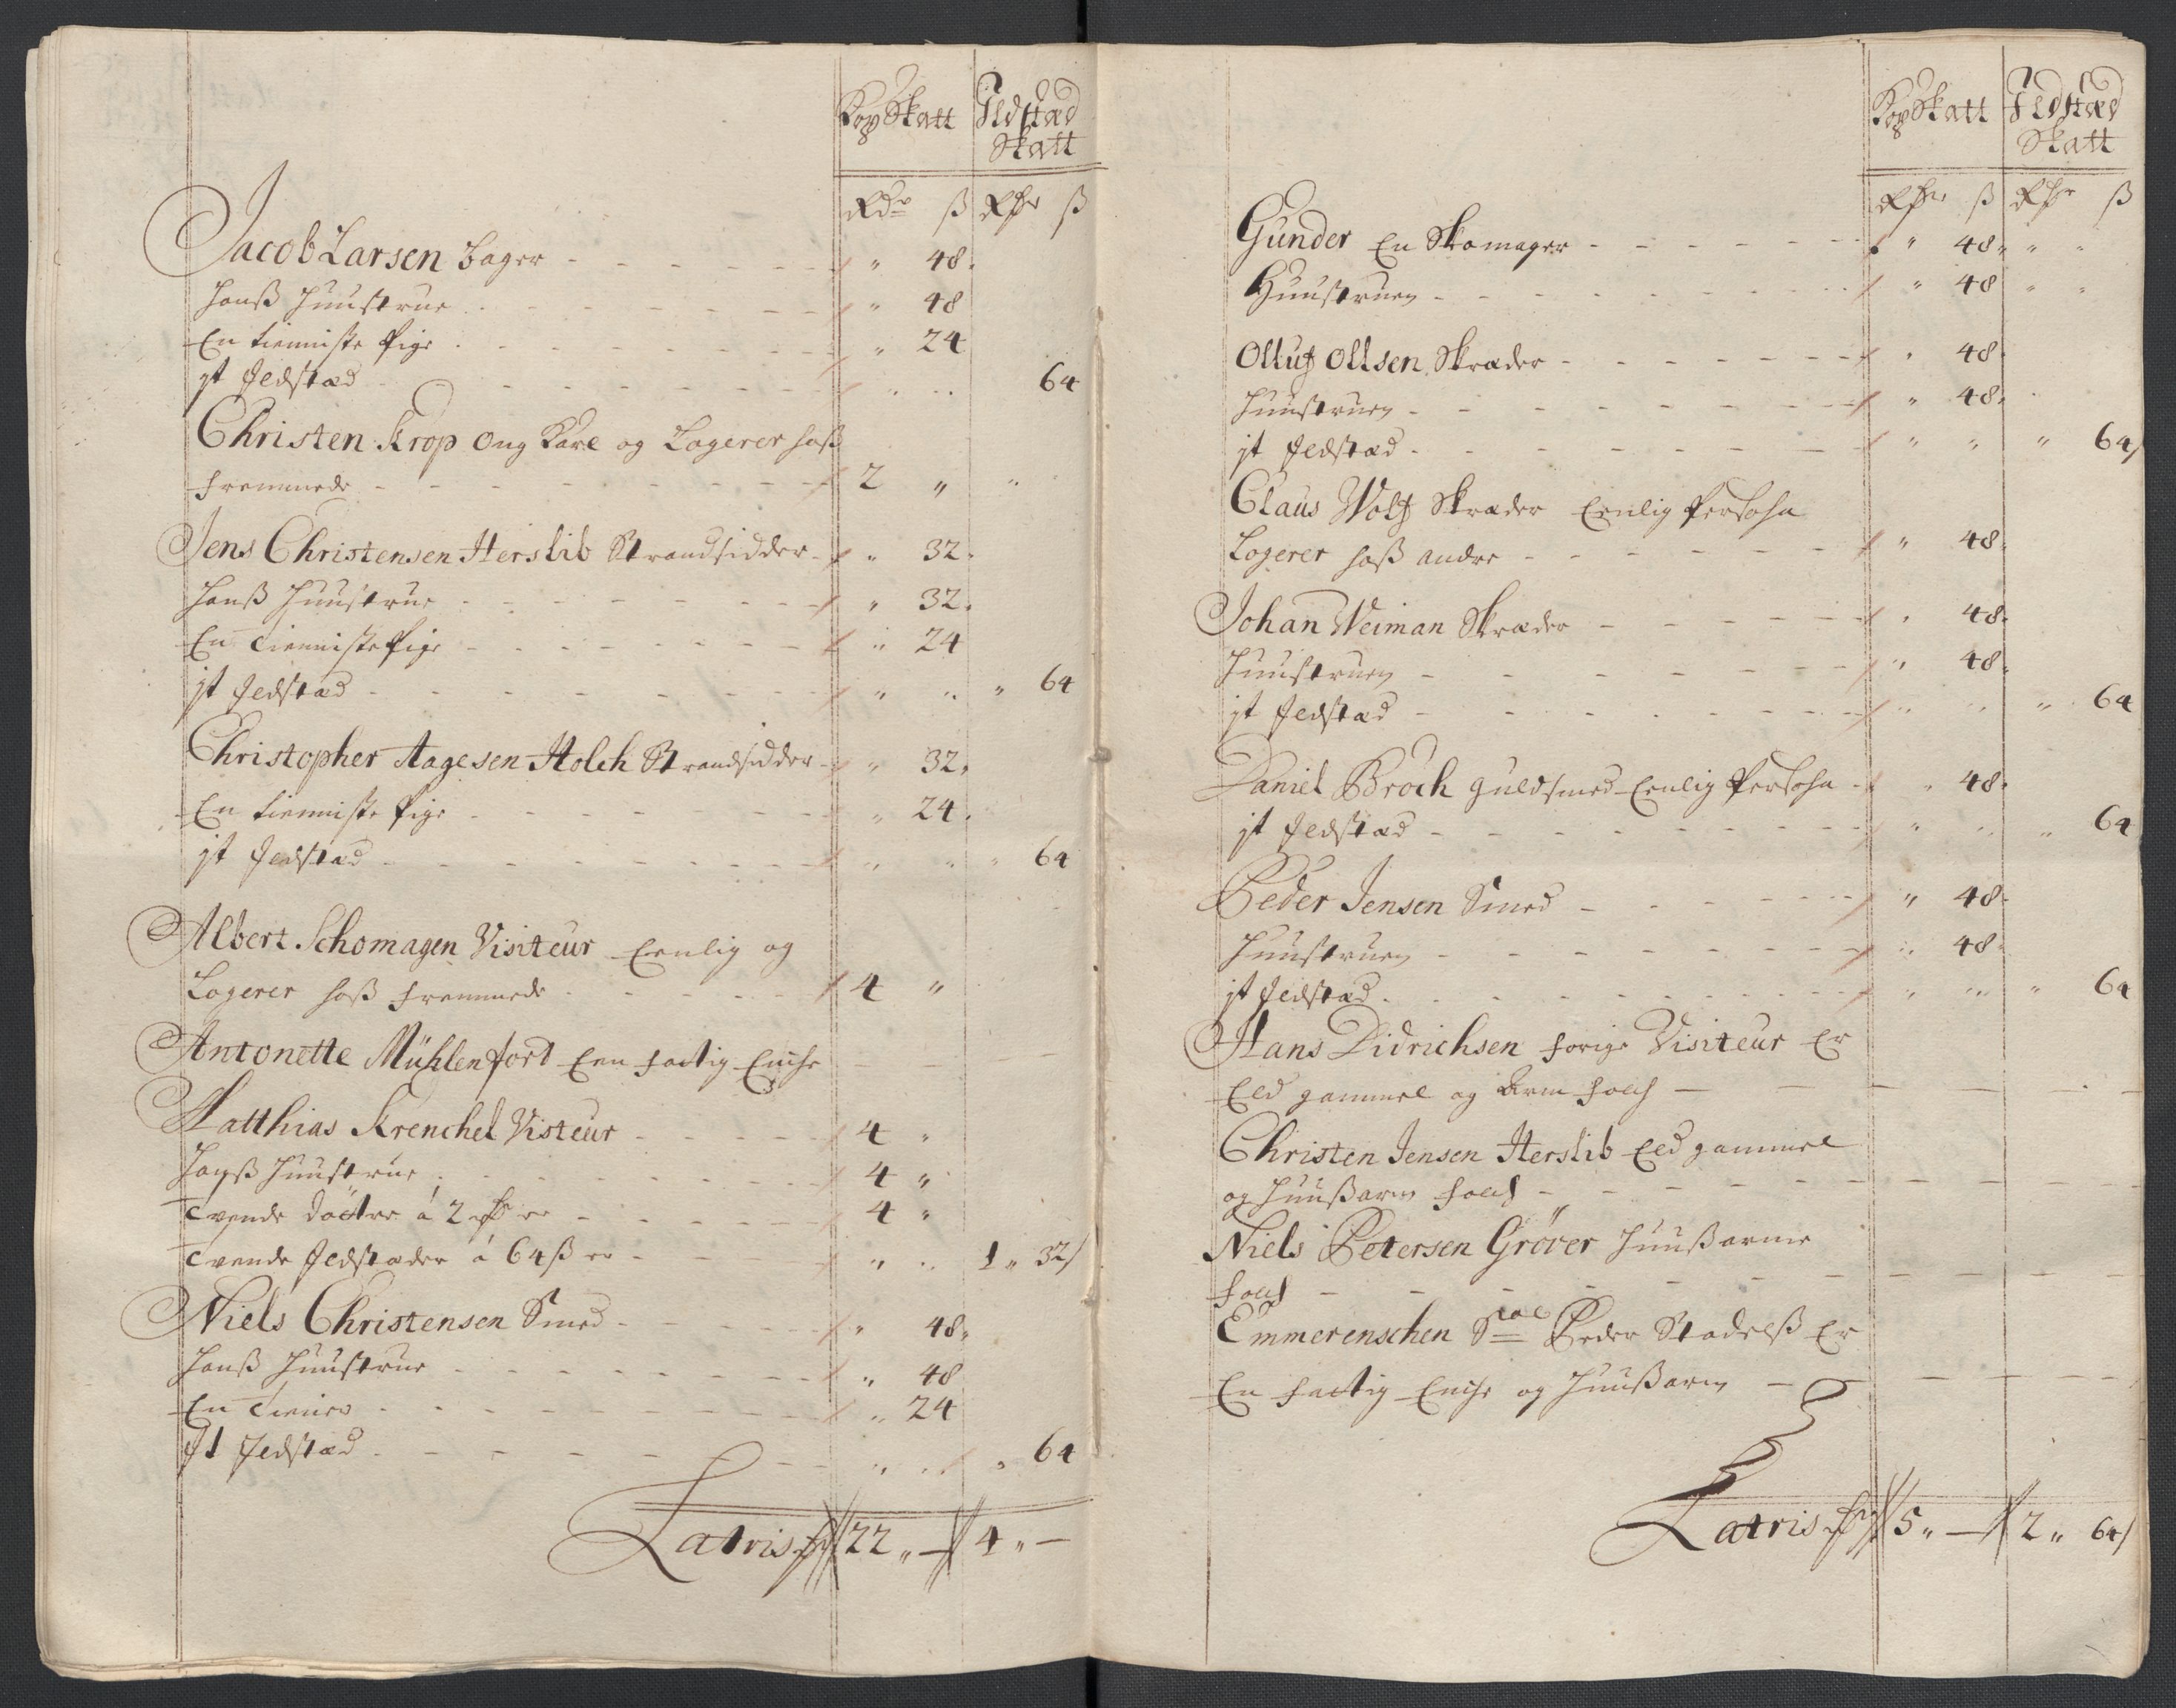 KopSkatt Ildstæd
Skatt
Rdr ß Rdr ß
Jacob Larsen bager - - - " 48.
Hanß Huustrue - - - " 48
En tienniste Pige - - - " 24
jt Jldstæd - - - " " 64
Christen Krop Ung Karl og Logerer hoß
fremmede - - - 2 "
Jens Christensen Herslib Strandsidder - " 32.
Hanß Huustrue - - - " 32.
En Tienniste Pige - - - " 24
jt Jldstæd - - - " " " 64
Christopher Aagesen Holch Strandsidder - " 32.
En tienniste Pige - - - " 24.
jt Jldstæd - - - " " " 64
Albert Schomagen Visiteur Eenlig og
Logerer hoß fremmede - - - 4 "
Antonette Mühlenfort Een fattig Encke - -
Matthias Krenchel Visteur - - - 4 "
Hanß Huustrue - - - 4 "
Tvende Döttre á 2 Rdr er - - - 4 "
Tvende Jldstæder á 64 ß er - - - " " 1 " 32
Niels Christensen Smed - - - " 48.
Hanß Huustrue - - - " 48
En Tiener - - - " 24
Jt Jldstæd - - - " " " 64
Latris Rdr 22 " — 4 " —
KopSkatt Ildstæd
Skatt
Rdr ß Rdr ß
Gunder En Skomager - - - " 48 " "
Huustruen - - - " 48 " "
Olluf Ollsen Skræder - - - " 48.
Huustruen - - - " 48.
jt Jldstæd - - - " " " 64
Claus Wolf Skræder Eenlig Persohn
Logerer hoß andre - - - " 48.
Johan Weiman Skræder - - - " 48.
Huustruen - - - " 48.
jt Jldstæd - - - " " " 64
Daniel Broch Guldsmed Eenlig Persohn - " 48.
jt Jldstæd - - - " " " 64
Peder Jensen Smed - - - " 48.
Huustruen - - - " 48.
jt Jldstæd - - - " " " 64
Hans Didrichsen forige Visiteur Er
Eld gammel og Arm folch — — —
Christen Jensen Herslib Eld gammel
og Huußarm folch - - -
Niels Petersen Gröver Huußarme
folch - - -
Emmerenschen Sal Peder Stadelß Er
En fattig Encke og Huußarm - - -
Latris Rdr 5 " — 2 " 64